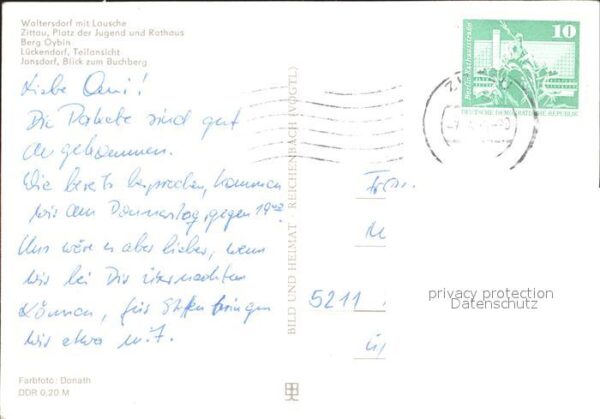 Waltersdorf mit Lausche
Zittau, Platz der Jugend und Rathaus
Berg Oybin
Lückendorf, Teilansicht
Jonsdorf, Blick zum Buchberg
Liebe Omi!
Die Pakete sind gut
angekommen.
Wie bereits besprochen, kommen
wir am Donnerstag gegen 19
Uns wäre es aber lieber, wenn
wir bei Dir übernachten
können, für Steffen bringen
wir etwas mit.
Farbfoto: Donath
DDR 0,20 M
BILD UND HEIMAT REICHENBACH (VOGTL)
10
Berlin, Rathausstraße
DEUTSCHE DEMOKRATISCHE REPUBLIK
5211
privacy protection
Datenschutz